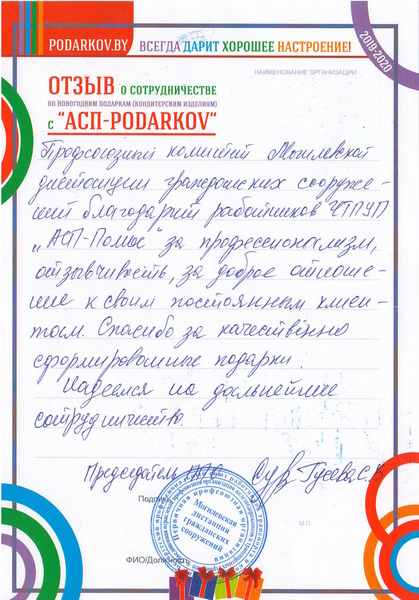 PODARKOV.BY
ВСЕГДА ДАРИТ ХОРОШЕЕ НАСТРОЕНИЕ!
2019-2020
НАИМЕНОВАНИЕ ОРГАНИЗАЦИИ
ОТЗЫВ О СОТРУДНИЧЕСТВЕ
ПО НОВОГОДНИМ ПОДАРКАМ (КОНДИТЕРСКИМ ИЗДЕЛИЯМ)
С "АСП-PODARKOV"
Профсоюзный комитет Могилевской
дистанции гражданских сооруже-
ний благодарит работников ЧТПУП
„АСП-Полюс" за профессионализм,
отзывчивость, за доброе отноше-
ние к своим постоянным клиен-
там. Спасибо за качественно
сформированные подарки.
Надеемся на дальнейшее
сотрудничество
Председатель Гусева С.В
Подпись
М.П
ФИО/Должность
Первичная профсоюзная организация
Могилевская
дистанция
гражданских
сооружений